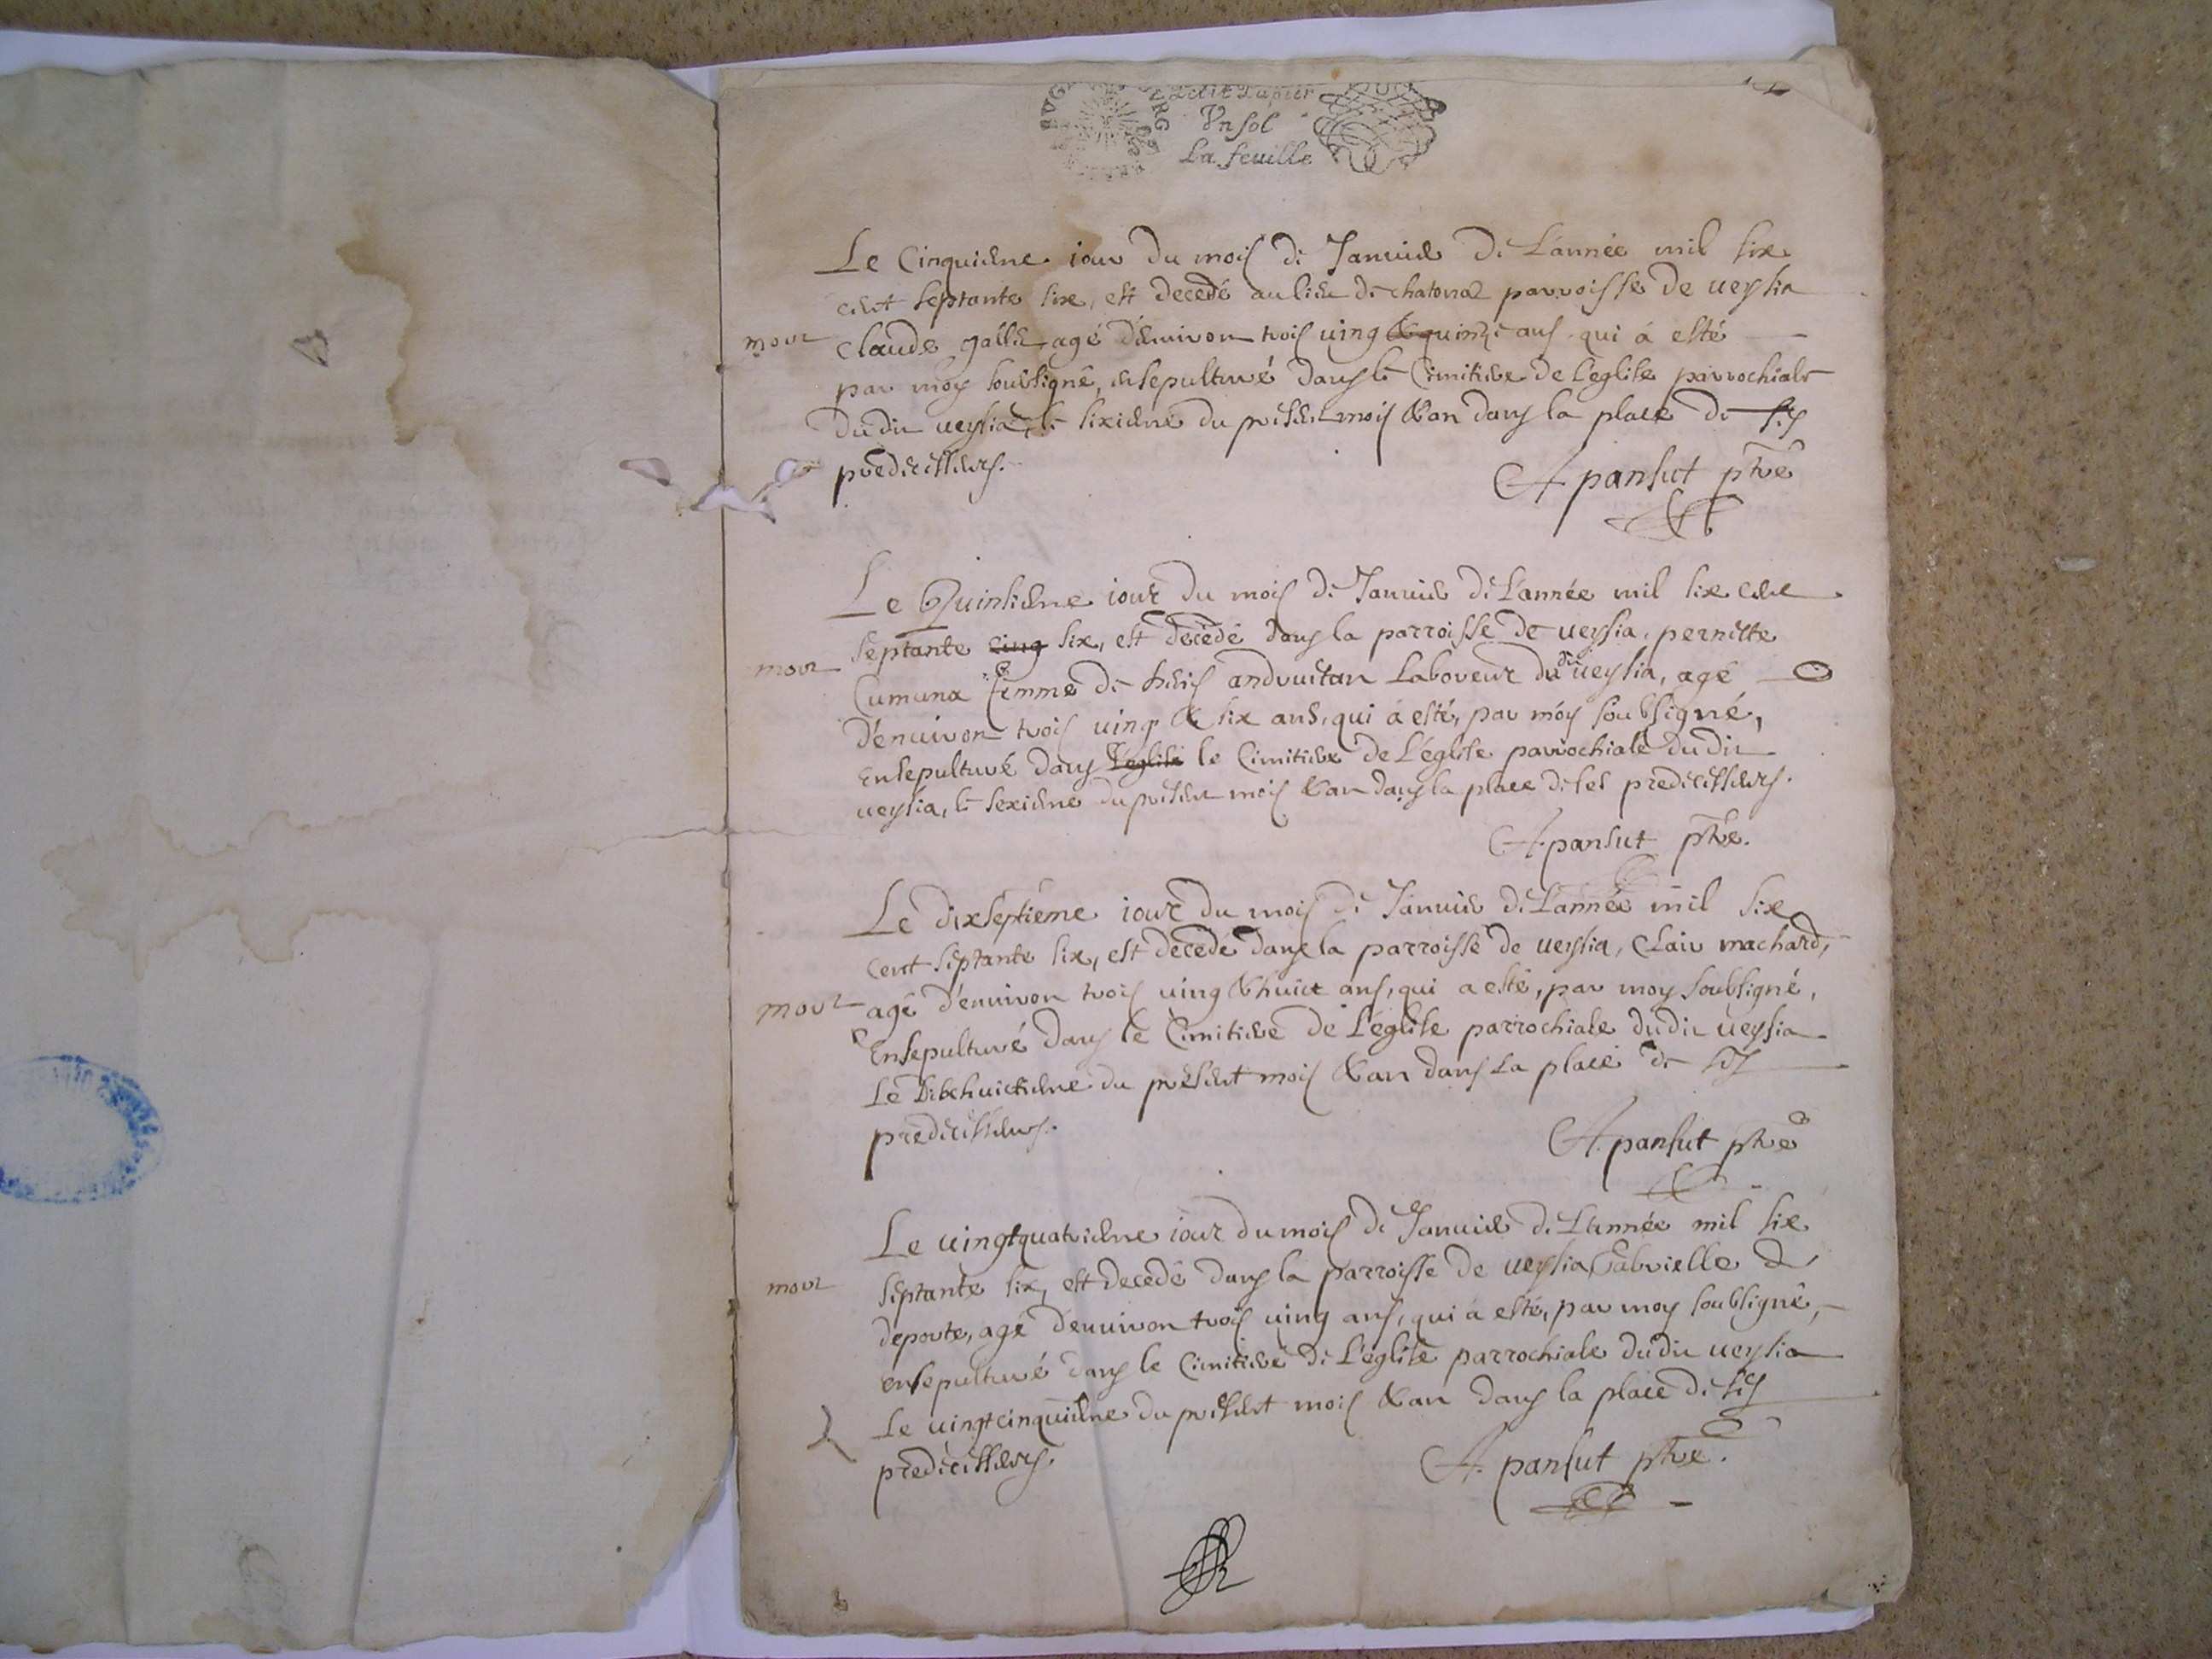 Petit Papier
Un sol
La feuille
Le Cinquiesme iour du mois de Januier De L'année mil six
cent septante six, est decedé au lieu de chatonas parroisse de ueysia
mort
Claude gallet agé d'enuiron trois uing & quinze ans qui á esté
par moy soubsigné, ensepulturé dans le Cimitiere de L'eglise parrochiale
Du dit ueysia, le sixiesme du present mois & an dans la place de ses
predecesseurs.
A pansut ptre
Le Quinsiesme iour du mois de Januier de L'année mil six cent
septante cinq six, est decedé dans la parroisse de ueysia, pernette
mort
femme de andruetan Laboureur du dit ueysia, agé
d'enuiron trois uing & six ans, qui á esté, par moy soubsigné,
Ensepulturé dans L'eglise le Cimitiere de L'eglise parrochiale du dit
ueysia, le sexiesme du present mois & an dans la place de ses predecesseurs.
A. pansut ptre.
Le dixseptieme iour du mois de Januier de L'année mil six
cent septante six, est decedé dans la parroisse de ueysia, Clair machard,
mort
agé d'enuiron trois uing & huict ans, qui a esté, par moy soubsigné,
Ensepulturé dans le Cimitiere de L'eglise parrochiale du dit ueysia
Le dixhuictiesme du present mois & an dans La place de ses
predecesseurs.
A. pansut ptre
Le uingtquatriesme iour du mois de Januier de L'année mil six
mort
septante six, est decedé dans la parroisse de ueysia Gabrielle
deporte, agé d'enuiron trois uing ans, qui a esté, par moy soubsigné,
ensepulturé dans le Cimitiere de L'eglise parrochiale du dit ueysia
Le uingtcinquiesme du present mois & an dans la place de ses
predecesseurs.
A. pansut ptre.